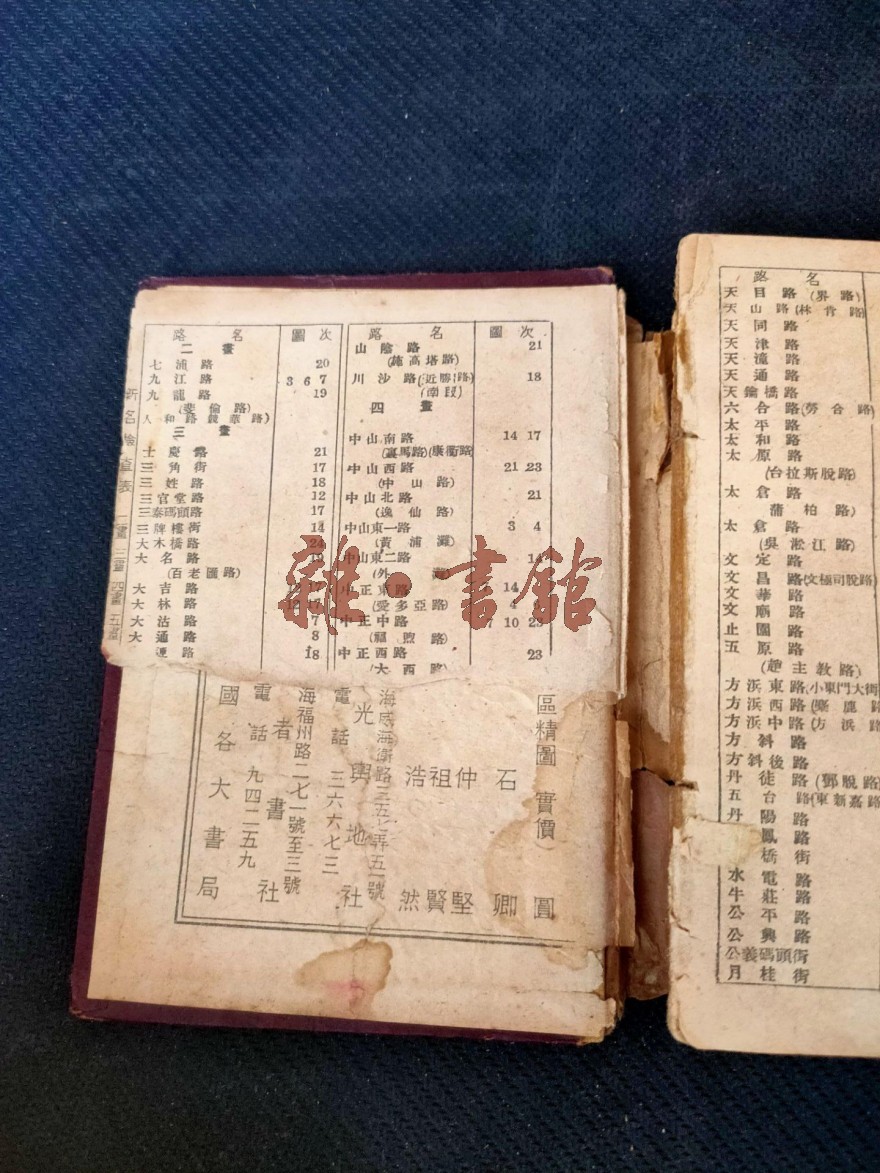 路名 圖次
二畫
七浦路 20
九江路 3 6 7
九龍路 19
(斐倫路)
三畫
士慶路 21
三角街 17
三姓路 18
三官堂路 12
三泰碼頭路 17
三牌樓街 14
大木橋路 24
大名路 19
(百老匯路)
大吉路
大林路
大沽路 7
大通路 8
大連路 18
路名 圖次
山陰路 21
(施高塔路)
川沙路(近勝路) 18
(南段)
四畫
中山南路 14 17
(裏馬路)(康衢路
中山西路 21 23
(中山路)
中山北路 21
(逸仙路)
中山東一路 3 4
(黃浦灘)
中山東二路 14
(外灘)
中正東路
(愛多亞路)
中正中路 10 23
(福煦路)
中正西路 23
(大西路)
新名檢查表 二畫 三畫 四畫 五畫
區精圖 實價 圓
石 卿
仲 堅
祖 賢
浩 然
海威海衛路三五七弄五一號
光輿地社
電話 三六六七三
海福州路二七一號至三號
者書社
電話 九四二五九
國各大書局
雜·書館
路名
天目路(界路)
天山路(林肯路)
天同路
天津路
天潼路
天通路
天鑰橋路
六合路(勞合路)
太平路
太和路
太原路
(台拉斯脫路)
太倉路
蒲柏路)
太倉路
(吳淞江路)
文定路
文昌路(文極司脫路)
文華路
文廟路
止園路
五原路
(趙主教路)
方浜東路(小東門大街
方浜西路(麋鹿路
方浜中路(方浜路
方斜路
方斜後路
丹徒路(鄧脫路)
五台路(東新嘉路
丹陽路
鳳路
橋街
水電路
牛莊路
公平路
公興路
公義碼頭街
月桂街